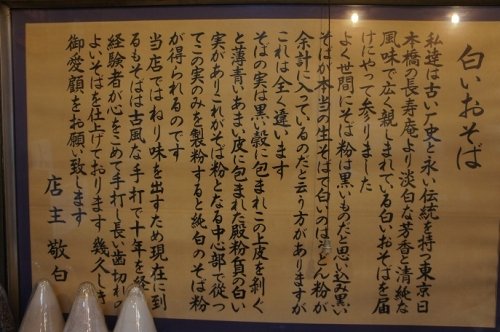 白いおそば
私達は古い歴史と永い伝統を持つ東京日
本橋の長寿庵より淡白な芳香と清純な
風味で広く親しまれている白いおそばを届
けにやって参りました
よく世間にそば粉は黒いものだと思い込み黒い
そばが本当の生そばで白いのはうどん粉が
余計に入っているのだと云う方がありますが
これは全く違います
そばの実は黒い殻に包まれこの上皮を剥ぐ
と薄青いあまい皮に包まれた殿粉質の白い
実がありこれがそば粉となる中心部で従っ
てこの実のみを製粉すると純白のそば粉
が得られるのです
当店ではねり味を出すため現在に到
るもそばは古風な手打で十年を
経験者が心をこめて手打し長い歯切れの
よいそばを仕上げております 幾久しき
御愛顧をお願い致します
店主 敬白